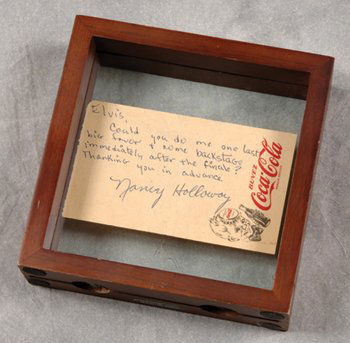 Elvis,
Could you do me one last
big favor & come backstage
immediately after the finale?
Thanking you in advance
Nancy Holloway
DRINK
Coca-Cola